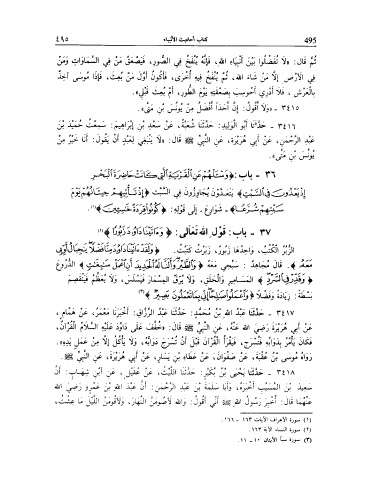 ٤٩٥ كتاب أحاديث الأنبياء 495
ثُمَّ قَالَ: «لَا تُفَضِّلُوا بَيْنَ أَنْبِيَاءِ اللهِ، فَإِنَّهُ يُنْفَخُ فِي الصُّورِ، فَيَصْعَقُ مَنْ فِي السَّمَاوَاتِ وَمَنْ
فِي الْأَرْضِ إِلَّا مَنْ شَاءَ اللهُ، ثُمَّ يُنْفَخُ فِيهِ أُخْرَى، فَأَكُونُ أَوَّلَ مَنْ بُعِثَ، فَإِذَا مُوسَى آخِذٌ
بِالْعَرْشِ، فَلَا أَدْرِي أَحُوسِبَ بِصَعْقَتِهِ يَوْمَ الطُّورِ، أَمْ بُعِثَ قَبْلِي».
٣٤١٥ - «وَلَا أَقُولُ: إِنَّ أَحَدًا أَفْضَلُ مِنْ يُونُسَ بْنِ مَتَّى».
٣٤١٦ - حَدَّثَنَا أَبُو الْوَلِيدِ: حَدَّثَنَا شُعْبَةُ، عَنْ سَعْدِ بْنِ إِبْرَاهِيمَ: سَمِعْتُ حُمَيْدَ بْنَ
عَبْدِ الرَّحْمَنِ، عَنْ أَبِي هُرَيْرَةَ، عَنِ النَّبِيِّ ﷺ قَالَ: «لَا يَنْبَغِي لِعَبْدٍ أَنْ يَقُولَ: أَنَا خَيْرٌ مِنْ
يُونُسَ بْنِ مَتَّى».
٣٦ - باب: ﴿وَسْئَلْهُمْ عَنِ الْقَرْيَةِ الَّتِي كَانَتْ حَاضِرَةَ الْبَحْرِ
إِذْ يَعْدُونَ فِي السَّبْتِ﴾ يَتَعَدَّوْنَ يُجَاوِزُونَ فِي السَّبْتِ ﴿إِذْ تَأْتِيهِمْ حِيتَانُهُمْ يَوْمَ
سَبْتِهِمْ شُرَّعًا﴾- شَوَارِعَ - إِلَى قَوْلِهِ: ﴿كُونُوا قِرَدَةً خَاسِئِينَ﴾(١)
٣٧ - باب: قَوْلِ اللهِ تَعَالَى: ﴿وَءَاتَيْنَا دَاوُدَ زَبُورًا﴾(٢)
الزُّبُرُ الْكُتُبُ، وَاحِدُهَا زَبُورٌ، زَبَرْتُ كَتَبْتُ. ﴿وَلَقَدْ ءَاتَيْنَا دَاوُدَ مِنَّا فَضْلًا يَاجِبَالُ أَوِّبِي
مَعَهُ﴾. قَالَ مُجَاهِدٌ: سَبِّحِي مَعَهُ ﴿وَالطَّيْرَ وَأَلَنَّا لَهُ الْحَدِيدَ أَنِ اعْمَلْ سَابِغَاتٍ﴾ الدُّرُوعَ
﴿وَقَدِّرْ فِي السَّرْدِ﴾ الْمَسَامِيرِ وَالْحَلَقِ، وَلَا يُرِقَّ الْمِسْمَارَ فَيَسْلَسَ، وَلَا يُعَظِّمْ فَيَنْفَصِمَ
بَسْطَةً: زِيَادَةً وَفَضْلًا ﴿وَاعْمَلُوا صَالِحًا إِنِّي بِمَا تَعْمَلُونَ بَصِيرٌ﴾(٣)
٣٤١٧ - حَدَّثَنَا عَبْدُ اللهِ بْنُ مُحَمَّدٍ: حَدَّثَنَا عَبْدُ الرَّزَّاقِ: أَخْبَرَنَا مَعْمَرٌ، عَنْ هَمَّامٍ،
عَنْ أَبِي هُرَيْرَةَ رَضِيَ اللهُ عَنْهُ، عَنِ النَّبِيِّ ﷺ قَالَ: «خُفِّفَ عَلَى دَاوُدَ عَلَيْهِ السَّلَامُ الْقُرْآنُ،
فَكَانَ يَأْمُرُ بِدَوَابِّهِ فَتُسْرَجُ، فَيَقْرَأُ الْقُرْآنَ قَبْلَ أَنْ تُسْرَجَ دَوَابُّهُ، وَلَا يَأْكُلُ إِلَّا مِنْ عَمَلِ يَدِهِ».
رَوَاهُ مُوسَى بْنُ عُقْبَةَ، عَنْ صَفْوَانَ، عَنْ عَطَاءِ بْنِ يَسَارٍ، عَنْ أَبِي هُرَيْرَةَ، عَنِ النَّبِيِّ ﷺ.
٣٤١٨ - حَدَّثَنَا يَحْيَى بْنُ بُكَيْرٍ: حَدَّثَنَا اللَّيْثُ، عَنْ عُقَيْلٍ، عَنِ ابْنِ شِهَابٍ: أَنَّ
سَعِيدَ بْنَ الْمُسَيَّبِ أَخْبَرَهُ، وَأَبَا سَلَمَةَ بْنَ عَبْدِ الرَّحْمَنِ: أَنَّ عَبْدَ اللهِ بْنَ عَمْرٍو رَضِيَ اللهُ
عَنْهُمَا قَالَ: أُخْبِرَ رَسُولُ اللهِ ﷺ أَنِّي أَقُولُ: وَاللهِ لَأَصُومَنَّ النَّهَارَ، وَلَأَقُومَنَّ اللَّيْلَ مَا عِشْتُ،
(١) سورة الأعراف الآيات ١٦٣ - ١٦٦.
(٢) سورة النساء الآية ١٦٣.
(٣) سورة سبأ الآيتان ١٠ - ١١.